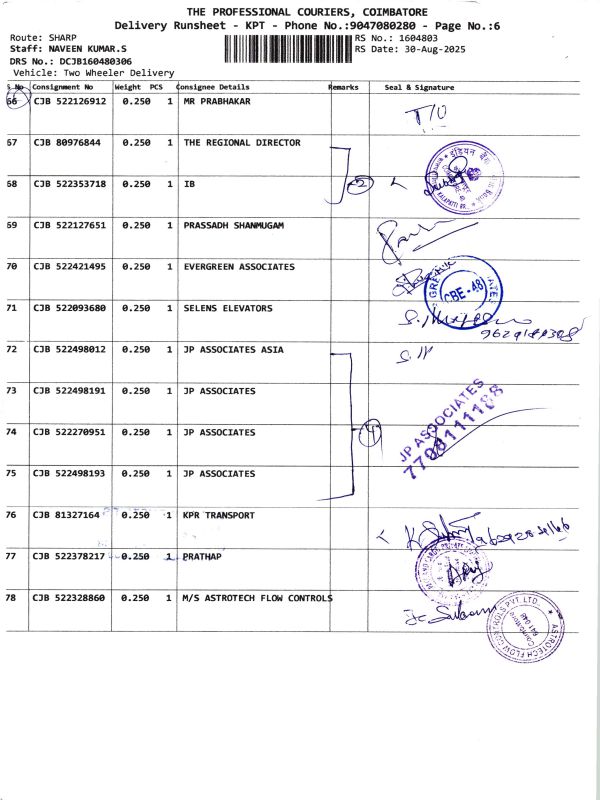 THE PROFESSIONAL COURIERS, COIMBATORE
Delivery Runsheet - KPT - Phone No.:9047080280 - Page No.:6
Route: SHARP
RS No.: 1604803
Staff: NAVEEN KUMAR.S
RS Date: 30-Aug-2025
DRS No.: DCJB160480306
Vehicle: Two Wheeler Delivery
S No Consignment No Weight PCS Consignee Details Remarks Seal & Signature
66 CJB 522126912 0.250 1 MR PRABHAKAR
T/O
67 CJB 80976844 0.250 1 THE REGIONAL DIRECTOR
68 CJB 522353718 0.250 1 IB 2
69 CJB 522127651 0.250 1 PRASSADH SHANMUGAM
70 CJB 522421495 0.250 1 EVERGREEN ASSOCIATES
CBE - 48
71 CJB 522093680 0.250 1 SELENS ELEVATORS
72 CJB 522498012 0.250 1 JP ASSOCIATES ASIA
73 CJB 522498191 0.250 1 JP ASSOCIATES
74 CJB 522270951 0.250 1 JP ASSOCIATES 4
JP ASSOCIATES
7708111188
75 CJB 522498193 0.250 1 JP ASSOCIATES
76 CJB 81327164 0.250 1 KPR TRANSPORT
77 CJB 522378217 0.250 1 PRATHAP
78 CJB 522328860 0.250 1 M/S ASTROTECH FLOW CONTROLS
ASTROTECH FLOW CONTROLS PVT. LTD.
Coimbatore
641 048